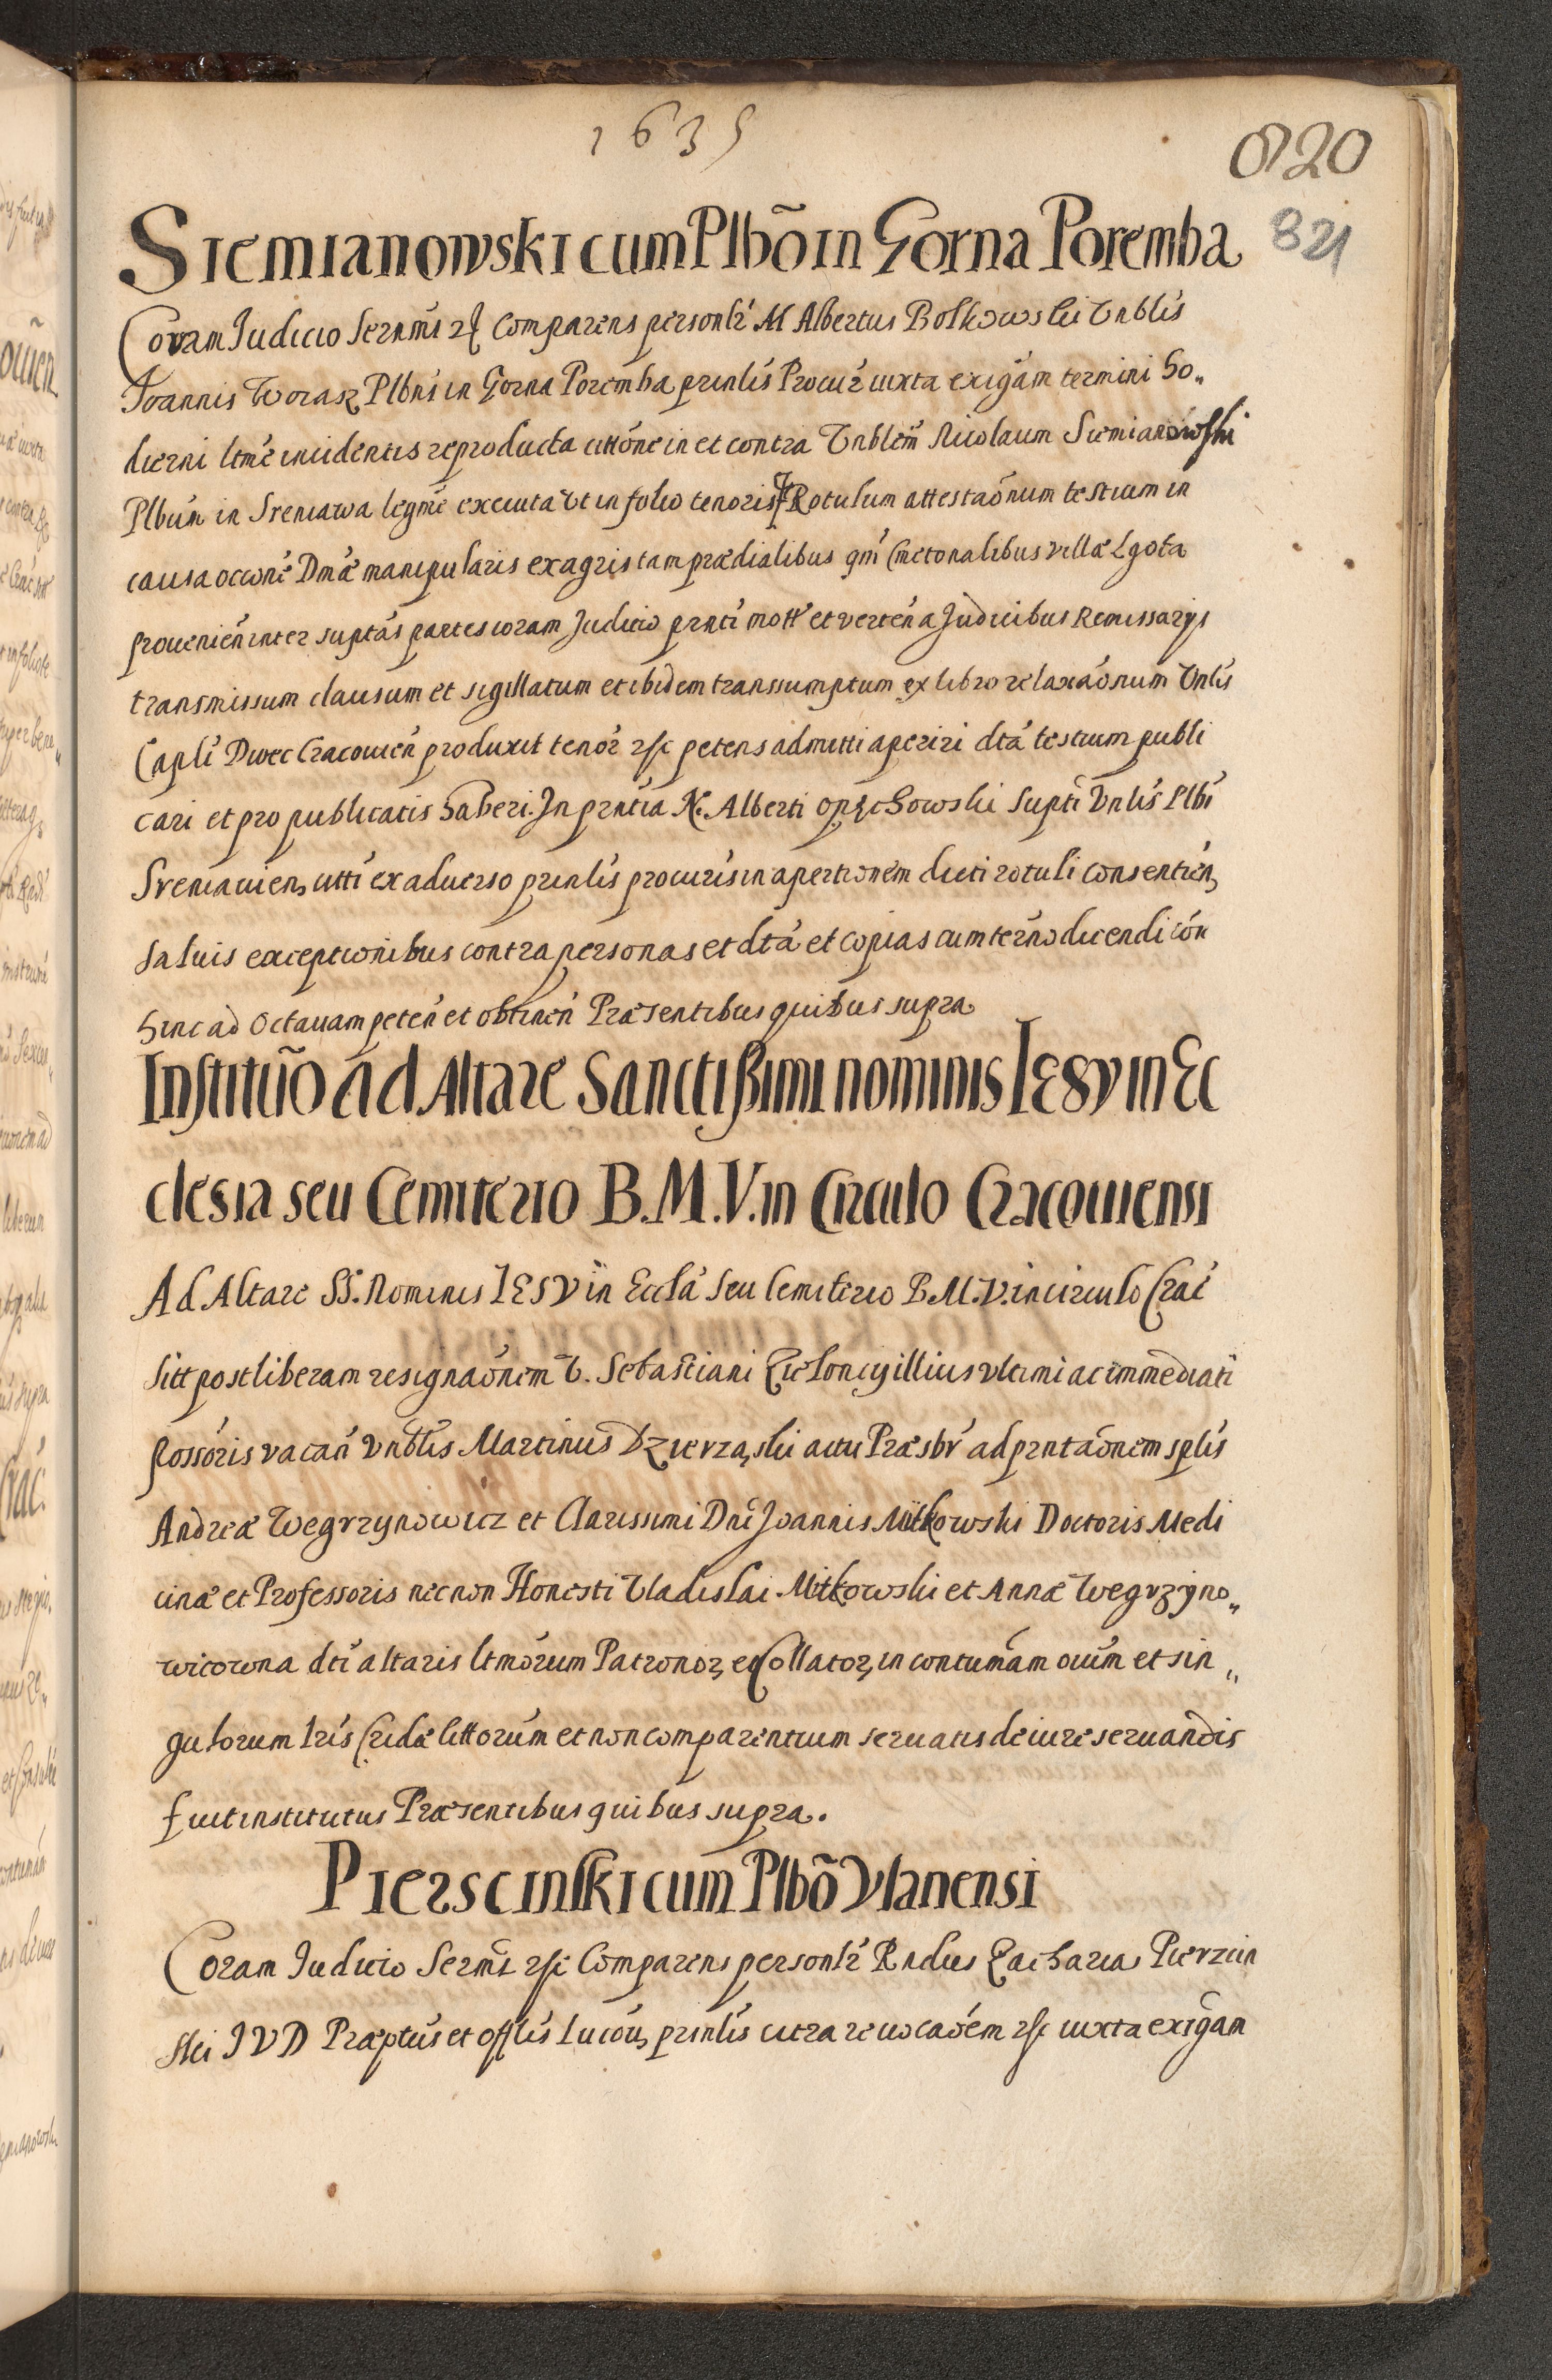 1635
820
821
Siemianowski cum Plbõ in Gorna Poremba
Coram Judicio Serñmi &c Comparens personlr M Albertus Bolkowski Vnblis
Joannis Worasz Plbni in Gorna Poremba prinlis Procur iuxta exigam termini ho„
dierni ltme incidentis reproducta cittõne in et contra Vnblem Nicolaum Siemianowski
Plbum in Sreniawa legme executa et in folio tenoris &c Rotulum attestaõnum testium in
causa occõne Dmæ manipularis ex agris tam prædialibus qm Cmetonalibus villæ Lgota
prouenien inter suptas partes coram Judicio prnti mott et verten a Judicibus Remissarijs
transmissum clausum et sigillatum et ibidem transsumptum ex libro relaxaõnum Vnlis
Capli Diœc Cracouien produxit tenor &c petens admitti aperiri dta testium publi
cari et pro publicatis haberi. In prntia N. Alberti Opęchowski Supti Vnlis Plbi
Sreniauien, utti ex aduerso prinlis procuris in apertionem dicti rotuli consentien,
saluis exceptionibus contra personas et dta et copias cum terño dicendi con
hinc ad Octauam peten et obtinen Præsentibus quibus supra
Institutio ad Altare Sanctissimi nominis IESV in Ec
clesia seu Cemiterio B.M.V. in Circulo Cracouiensi
Ad Altare SS. Nominis IESV in Eccla seu Cemiterio B.M.V. in circulo Crac
sitt post liberam resignaõnem V. Sebastiani Zieloncy illius vltimi ac immediati
possoris vacan Vnblis Martinus Dzierzązki actu Præsbr ad prntaõnem splis
Andreæ Wegrzynowicz et Clarissimi Dni Joannis Mitkowski Doctoris Medi
cinæ et Professoris necnon Honesti Vladislai Mitkowski et Annæ Wegrzyno„
wicowna dti altaris ltmorum Patronoȝ et Collatoȝ in contumam oium et sin„
gulorum lris Cridæ cittorum et non comparentium seruatis de iure seruandis
fuit institutus Præsentibus quibus supra.
Pierscinski cum Plbõ Vlanensi
Coram Judicio Sermi &c Comparens personlr Rndus Zacharias Pierzcin
ski J V D Præptus et Offlis Lucou, prinlis citra reuocaõem &c iuxta exigam